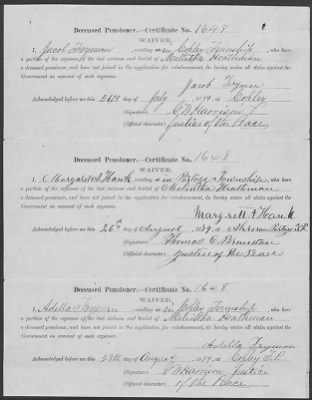 Deceased Pensioner.—Certificate No. 1648
WAIVER.
I, Jacob Fryman residing in Copley Township, who bore
a portion of the expenses of the last sickness and burial of Malintha Heathman
a deceased pensioner, and not joined in the application for reimbursement, do hereby waive all claim against the
Government on account of such expenses.
Jacob Fryman
Acknowledged before me this 21st day of July, 1879, at Copley
(Signature) C W Harrison
(Official character) Justice of the Peace
Deceased Pensioner.—Certificate No. 1648
WAIVER.
I, Margaret A Hank residing in Portage Township, who bore
a portion of the expenses of the last sickness and burial of Malintha Heathman
a deceased pensioner, and not joined in the application for reimbursement, do hereby waive all claim against the
Government on account of such expenses.
Margrett A Hank
Acknowledged before me this 26th day of August, 1879, at Akron Portage T.P.
(Signature) Thomas C
(Official character) Justice of the Peace
Deceased Pensioner.—Certificate No. 1648
WAIVER.
I, Adella Fryman residing in Copley Township, who bore
a portion of the expenses of the last sickness and burial of Malintha Heathman
a deceased pensioner, and not joined in the application for reimbursement, do hereby waive all claim against the
Government on account of such expenses.
Adella Fryman
Acknowledged before me this 28th day of August, 1879, at Copley T.P.
(Signature) C W Harrison Justice
(Official character) of the Peace